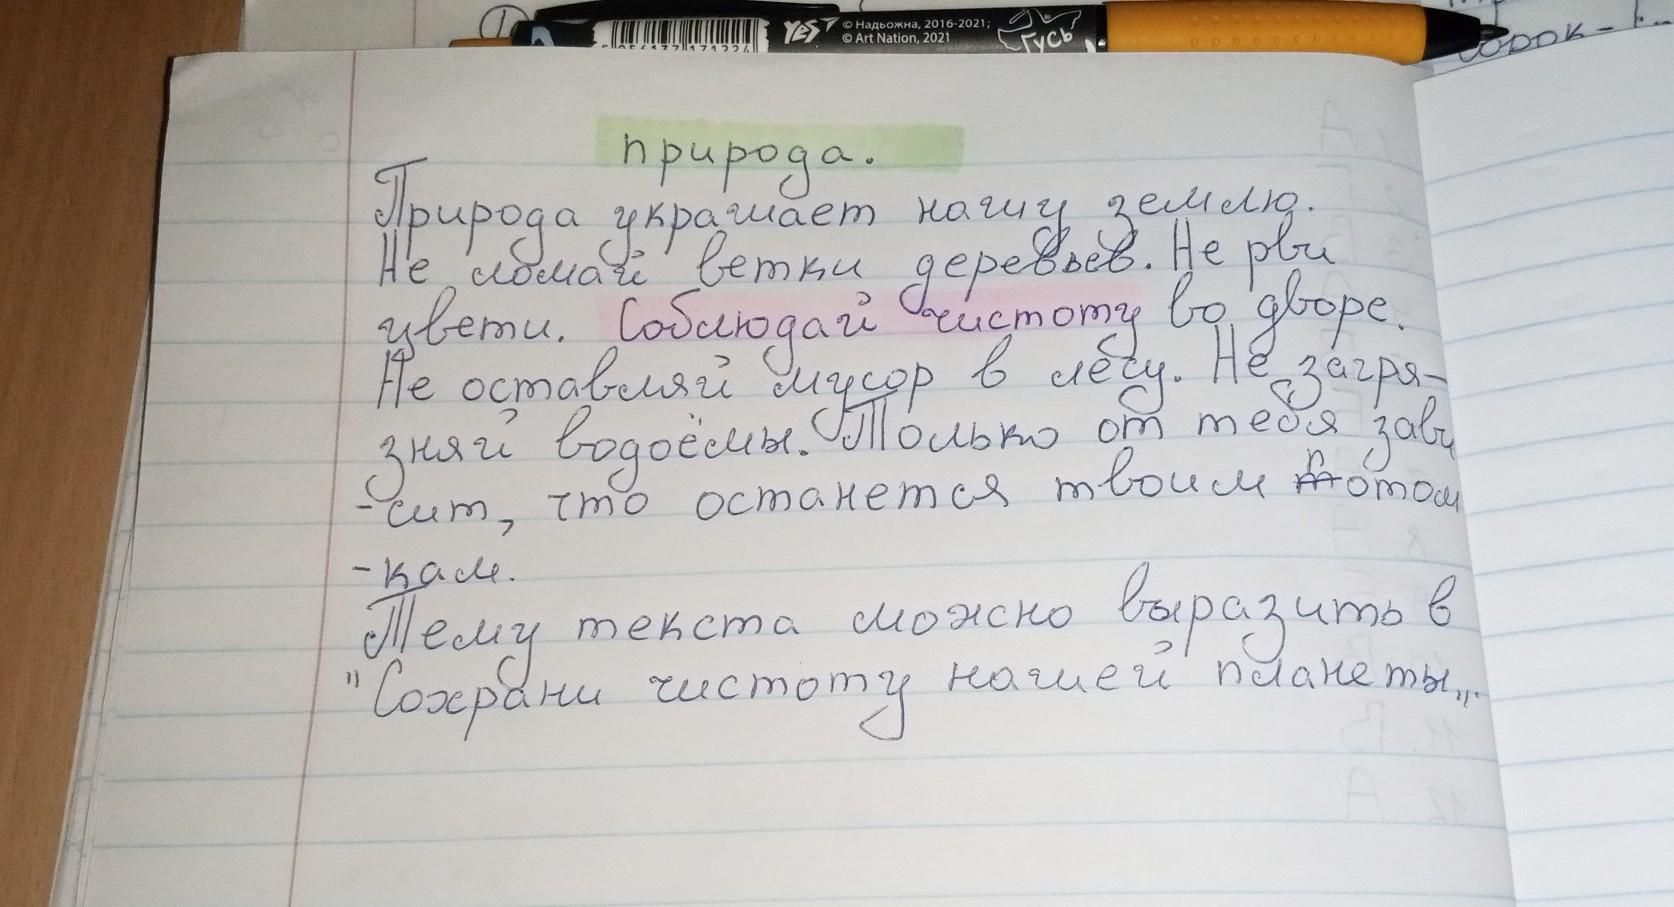 1
YES © Надьожна, 2016-2021;
© Art Nation, 2021
ГУСЬ
орок-
природа.
Природа украшает нашу землю.
Не ломай ветки деревьев. Не рви
цвети. Соблюдай чистоту во дворе.
Не оставляй мусор в лесу. Не загря-
зняй водоёмы. Только от тебя зави
-сит, что останется твоим потом
-кам.
Тему текста можно выразить в
"Сохрани чистоту нашей планеты„.